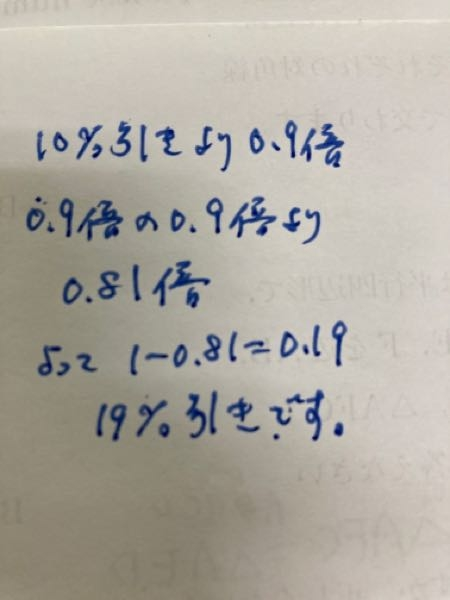 10%引きより0.9倍
0.9倍の0.9倍より
0.81倍
よって 1-0.81=0.19
19%引きです。